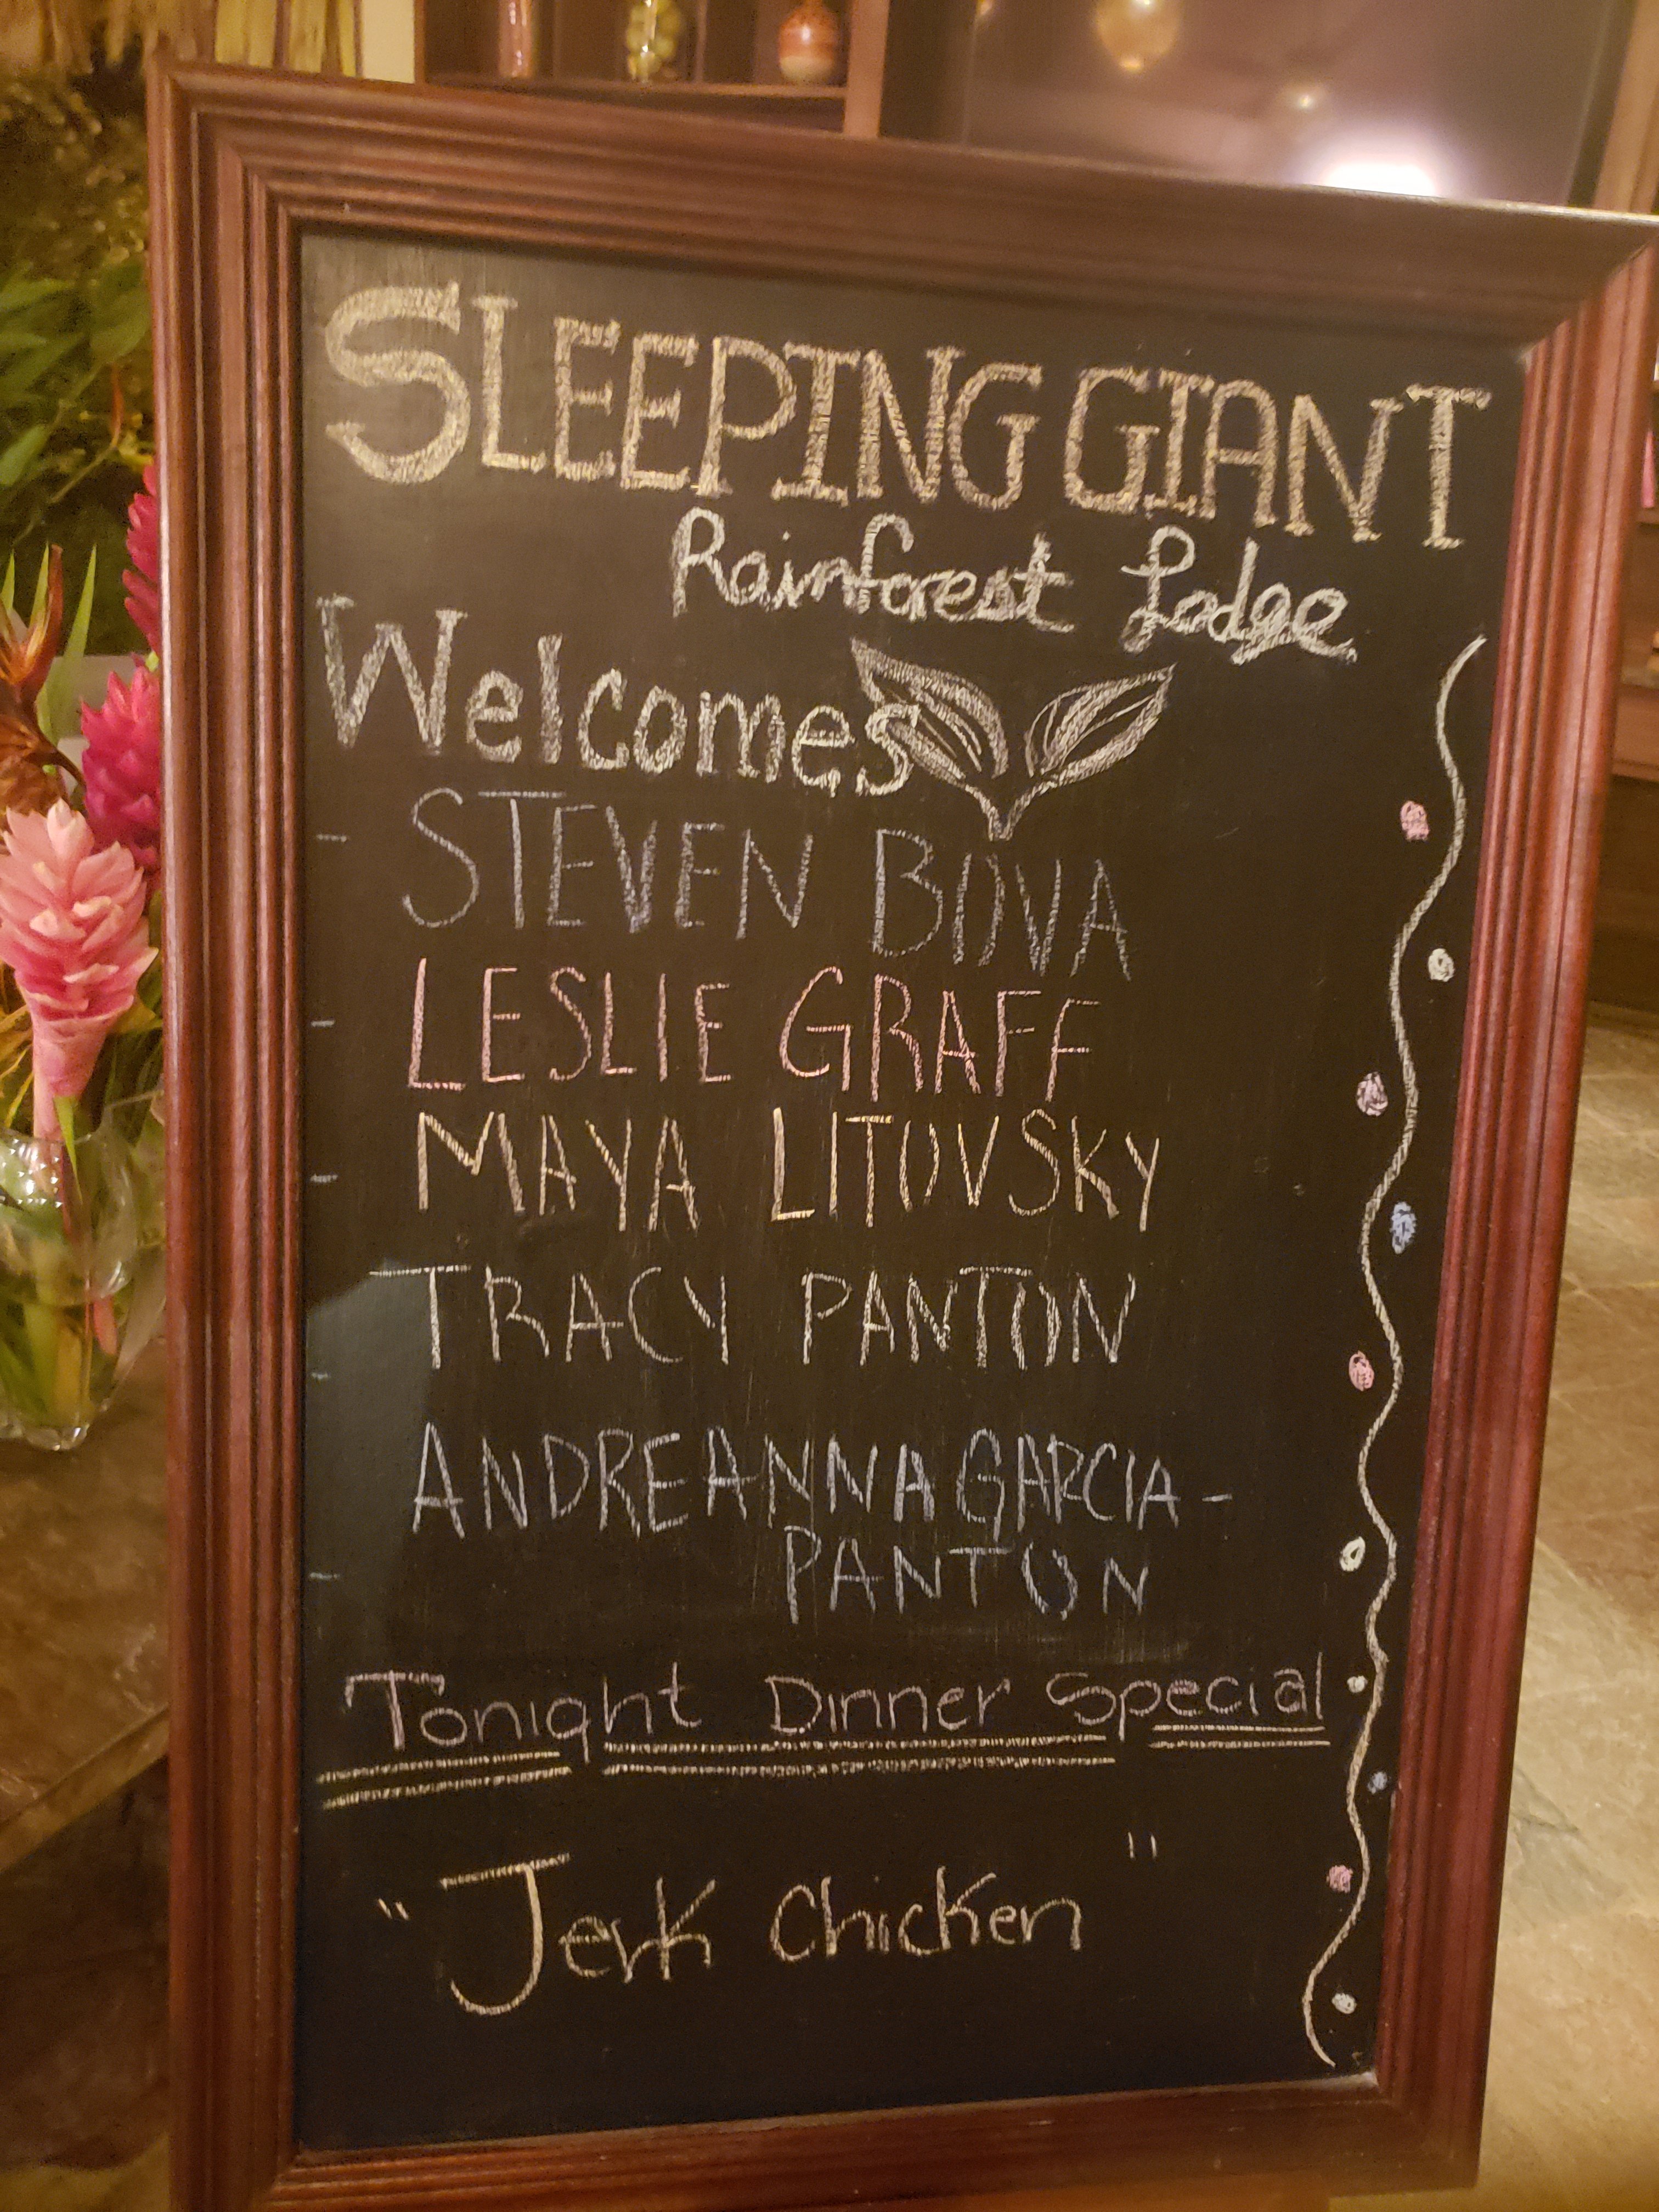 SLEEPING GIANT
Rainforest Lodge
Welcomes
- STEVEN BOVA
- LESLIE GRAFF
- MAYA LITOVSKY
- TRACY PANTON
- ANDREANNA GARCIA-
PANTON
Tonight Dinner Special
"Jerk Chicken"